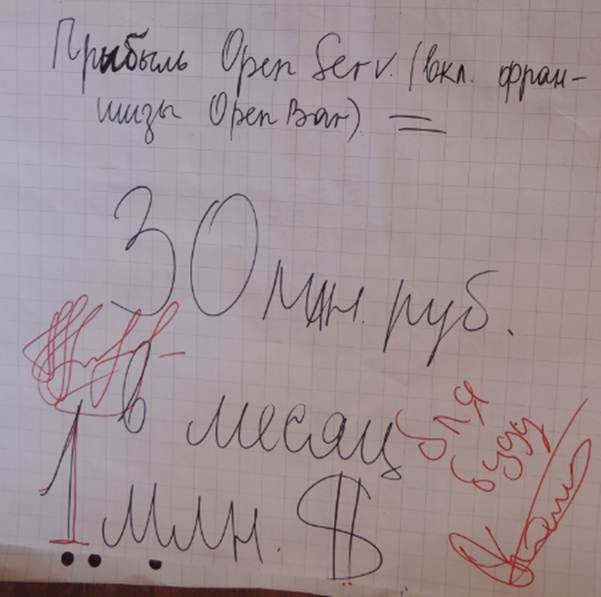 Прибыль Open Serv. (вкл. фран-
шизы Open Bar) =
30 млн. руб.
в месяц
бля
буду
1 млн. $